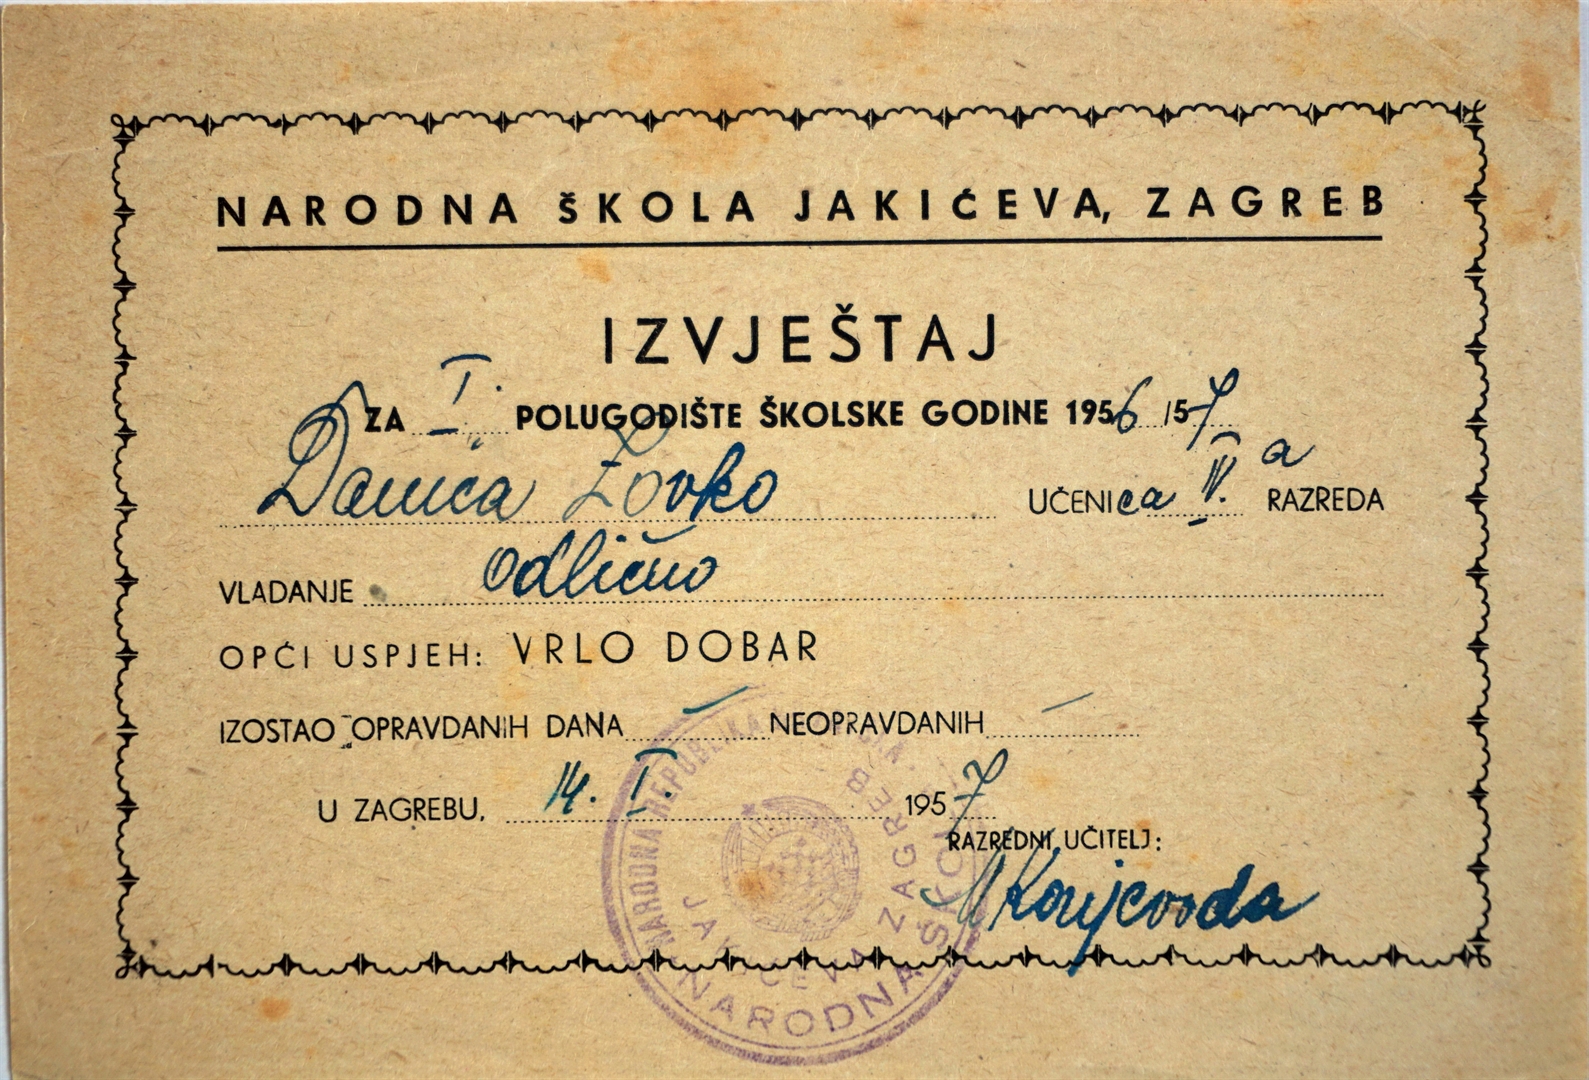 NARODNA ŠKOLA JAKIĆEVA, ZAGREB
IZVJEŠTAJ
ZA I. POLUGODIŠTE ŠKOLSKE GODINE 1956/57
Danica Zovko UČENIca IV. a RAZREDA
VLADANJE odlično
OPĆI USPJEH: VRLO DOBAR
IZOSTAO OPRAVDANIH DANA – NEOPRAVDANIH –
U ZAGREBU, 14. I. 1957
RAZREDNI UČITELJ:
MKonjevoda
NARODNA REPUBLIKA
NARODNA ŠKOLA
JAKIĆEVA ZAGREB